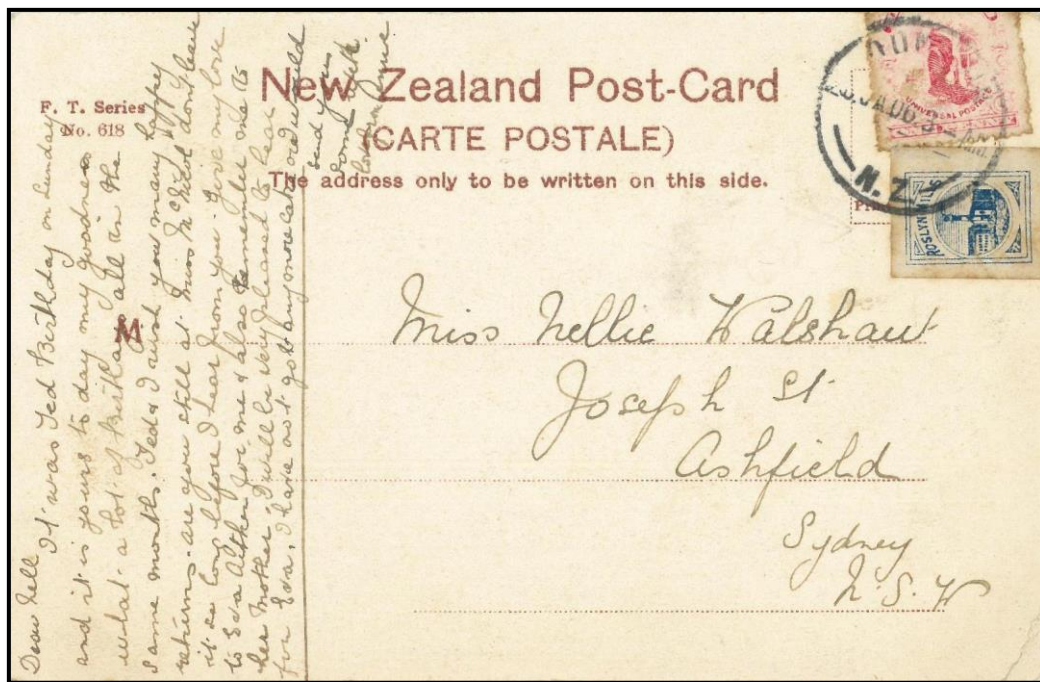 F. T. Series
No. 618
New Zealand Post-Card
(CARTE POSTALE)
The address only to be written on this side.
M
UNIVERSAL POSTAGE
N.Z.
ROSLYN MILLS
Miss Nellie Walshaw
Joseph St
Ashfield
Sydney
N. S. W
Dear Nell
It was Ted Birthday on Sunday
and it is yours to day my goodness
what a lot of Birthday all in the
same month. Ted & I wish you many happy
returns. are you still at Miss don't leave
it so long before I hear from you. Give my love
to Eva for me & also Remember me to
her Mother. I will be very pleased to hear
for Eva, I have not got any more cards would
send you
some